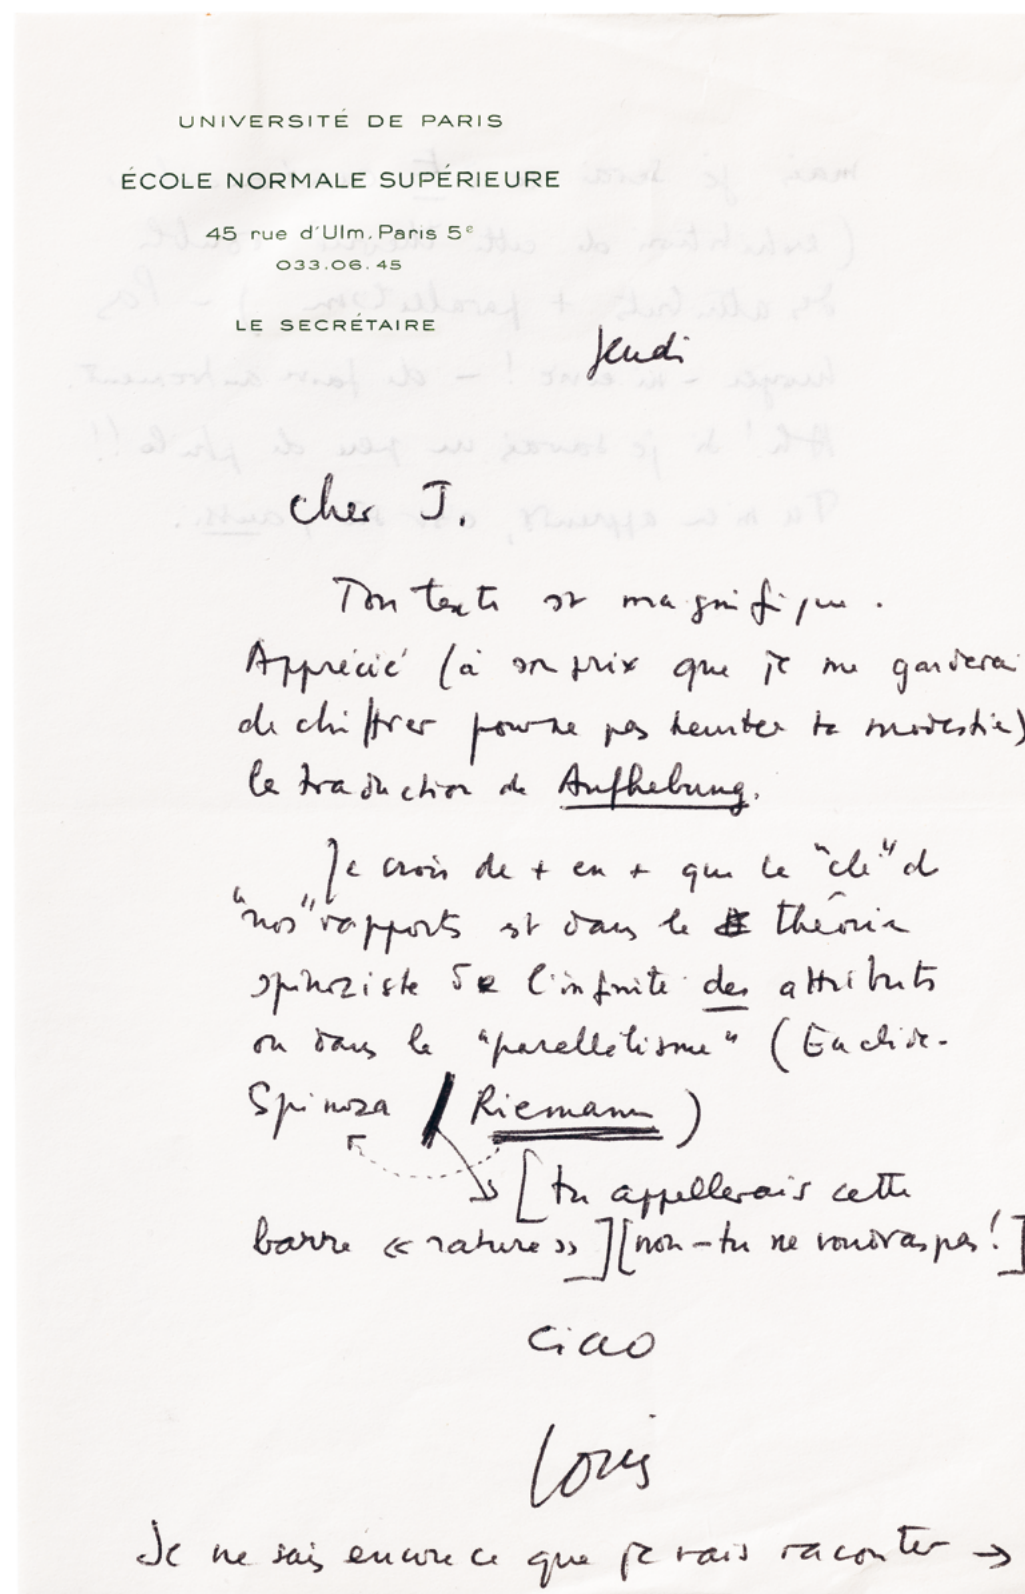 UNIVERSITÉ DE PARIS
ÉCOLE NORMALE SUPÉRIEURE
45 rue d'Ulm. Paris 5e
033.06.45
LE SECRÉTAIRE
Jeudi
Cher J.
Ton texte est magnifique.
Apprécié (à son prix que je me garderai
de chiffrer pour ne pas heurter ta modestie)
la traduction de Aufhebung.
Je crois de + en + que la "clé" de
"nos" rapports est dans la théorie
spinoziste de l'infinité des attributs
ou dans le "parallélisme" (Euclide-
Spinoza / Riemann)
[tu appellerais cette
barre « rature »] [non - tu ne voudras pas!]
Ciao
Louis
Je ne sais encore ce que je vais raconter →